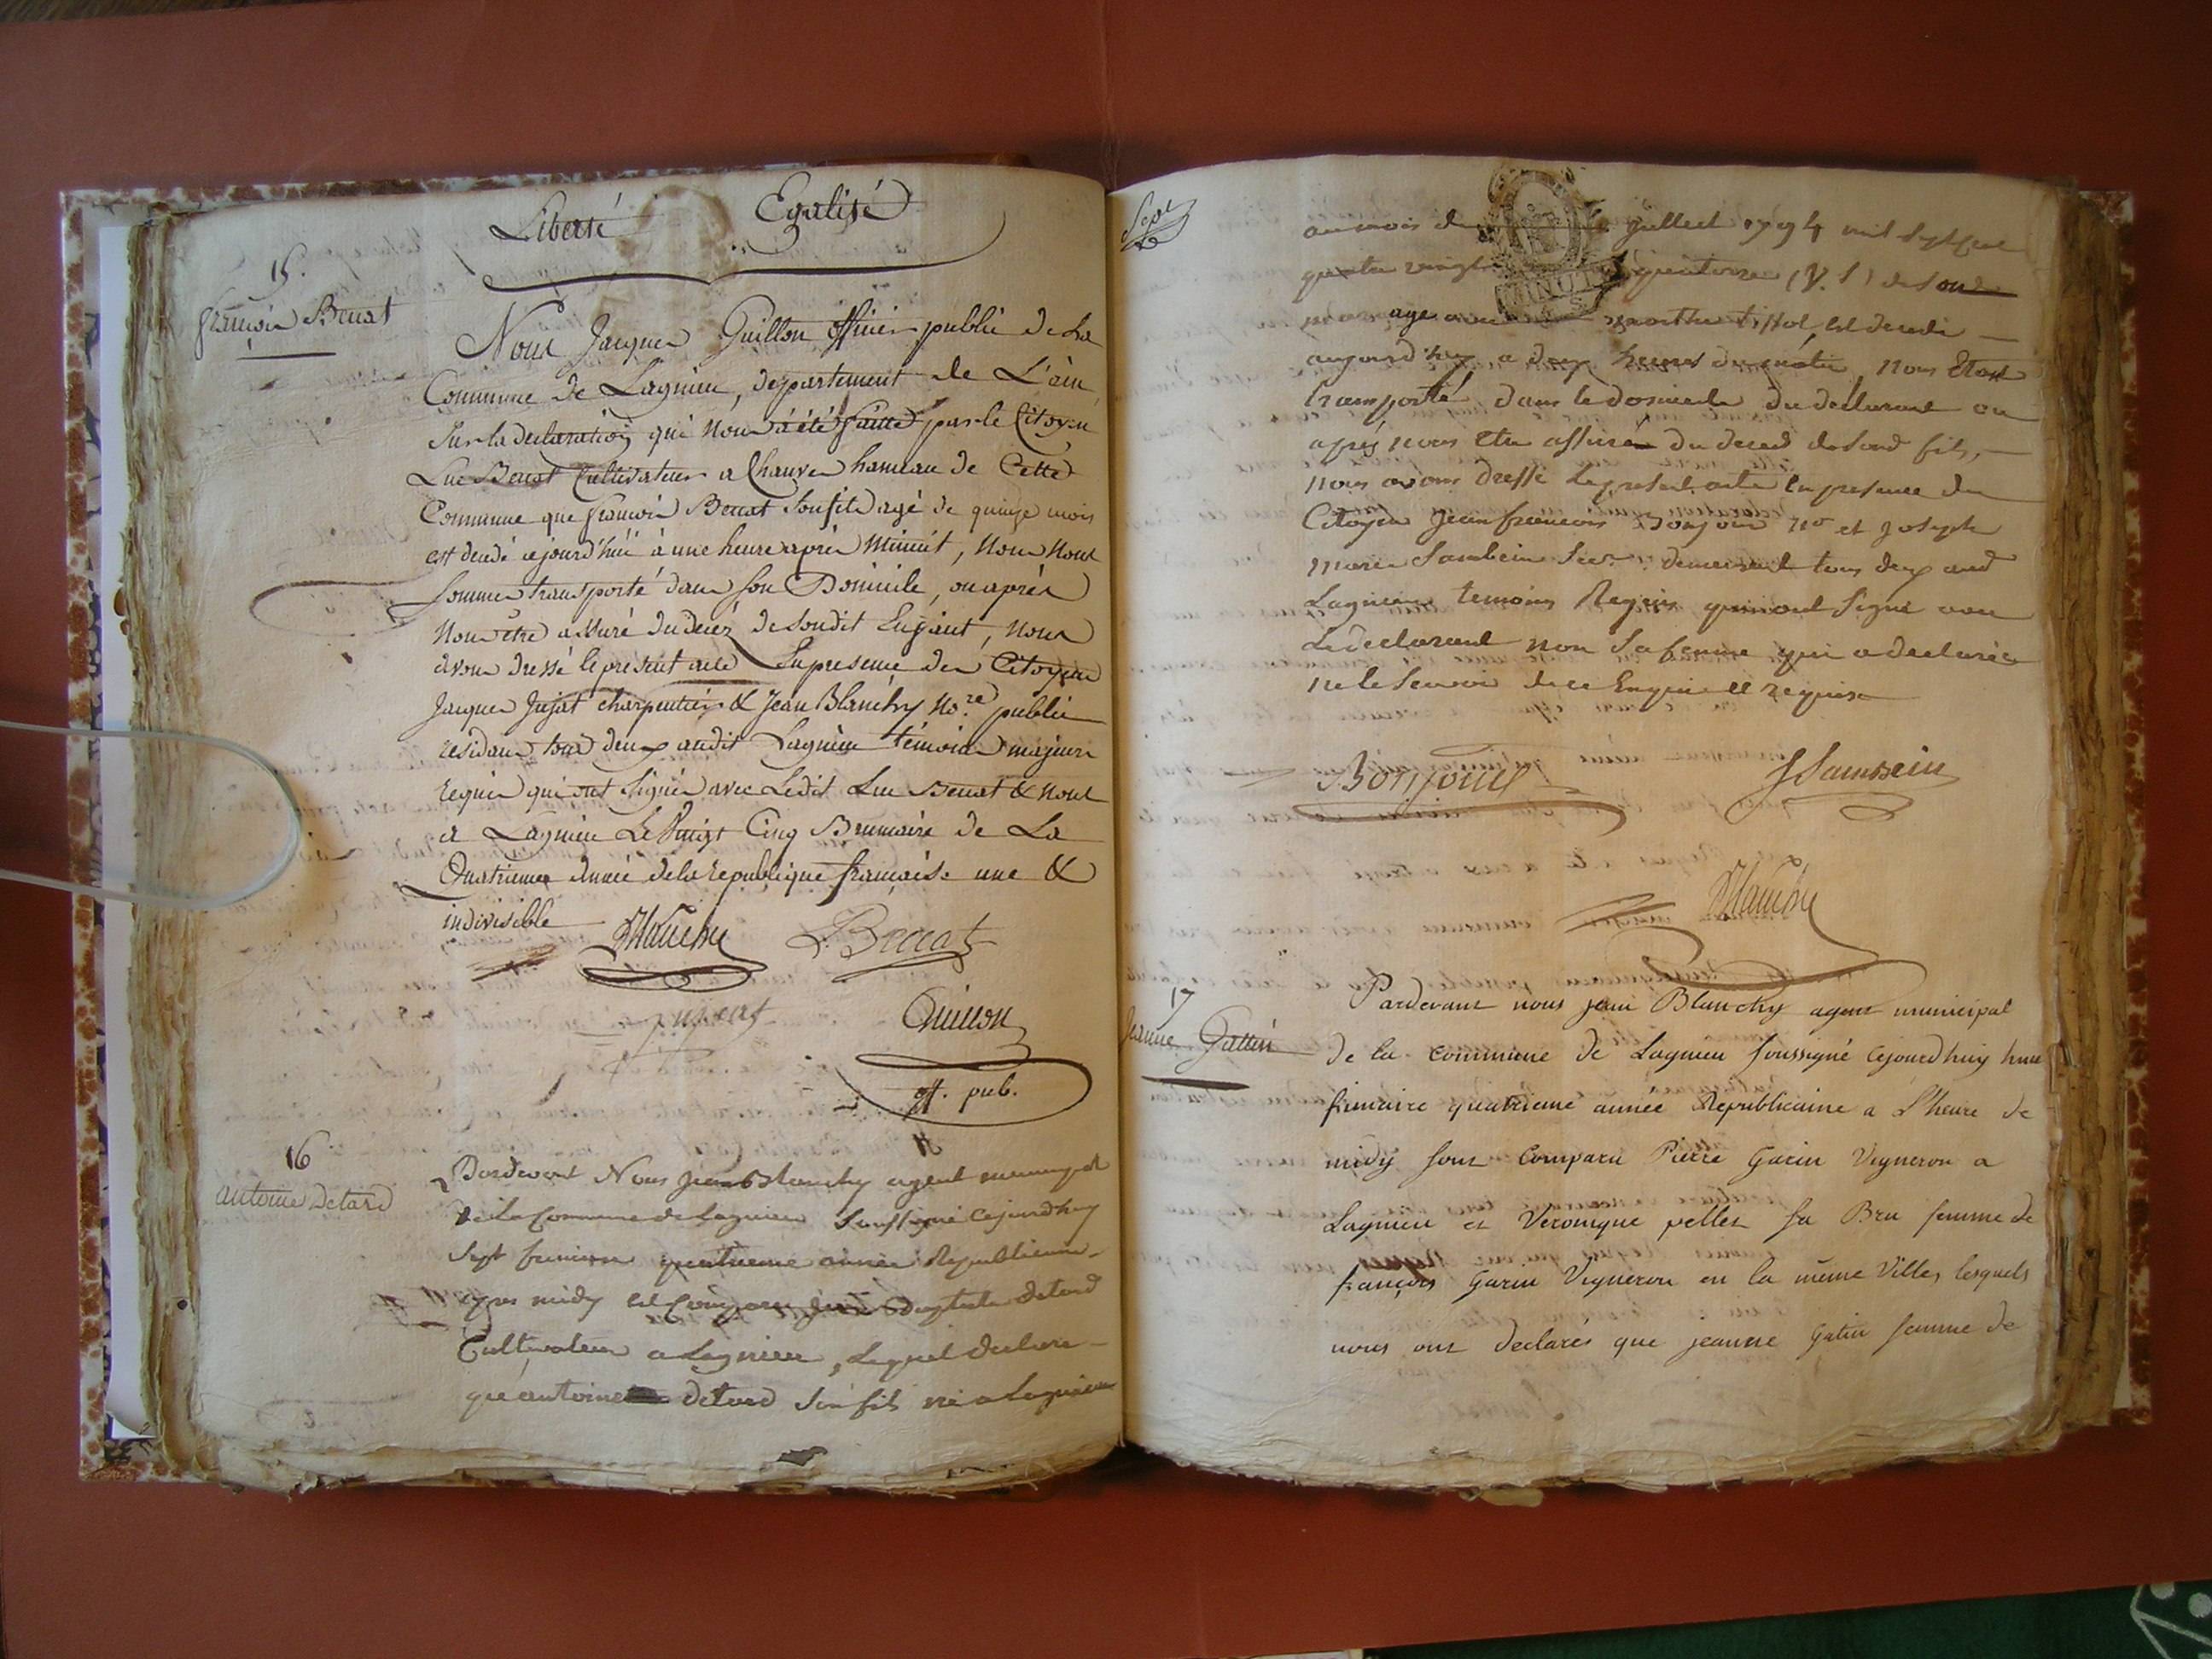 Liberté Egalité
15.
françois Benat
Nous Jacques Guillon officier public de La
Commune de Lagnieu, departement de L'ain
Sur la declaration qui nous a été faitte par le Citoyen
Luc Benat Cultivateur a Chauvres hameau de Cette
Commune que françois Benat Son fils agé de quinze mois
est decedé cejourd'hui à une heure après Minuit, Nous Nous
sommes transporté dans son Domicile, ou après
Nous être assuré du decez de Soudit Enfant, Nous
avons dressé le present acte En presence des Citoyens
Jacques Jujat charpentier & Jean Blanchy no.re public
résidans tous deux audit Lagnieu témoins majeurs
requis qui ont Signés avec Ledit Luc Benat & Nous
a Lagnieu Le Vingt Cinq Brumaire de La
Quatrieme Année de la republique française une &
indivisible
Blanchy L. Benat
jujat Guillon
off. pub.
16
antoine Detard
Pardevant Nous jean Blanchy agent municipal
de La Commune de Lagnieu Soussigné Cejourdhuy
Sept frimaire quatrieme année Republicaine
apres midy est Comparu Baptiste detard
Cultivateur a Lagnieu, Lequel declare
que antoine detard Son fils né a Lagnieu
Sept
au mois de juillet 1794 mil Sept Cent
quatre vingt quatorze (V. S) de Son
mariage avec marthe est decedé
aujourd'huy a deux heures du matin, nous Etant
transporté dans le domicile du declarant ou
après nous etre assuré du deced de Soud fils,
nous avons dressé Le present acte En presence du
Citoyen Jean francois Bonjour no.re et Joseph
marie Sambein demeurant tous deux aud
Lagnieu temoins Requis qui ont Signé avec
Le declarant non Sa femme qui a declarée
ne le Scavoir de ce Enquise et requise
Bonjour JSambein
Blanchy
17
Jeanne Gattin
Pardevant nous jean Blanchy agent municipal
de la commune de Lagnieu soussigné cejourdhuy huit
frimaire quatrieme année Republicaine a L'heure de
midy sont Comparu Pierre Garin Vigneron a
Lagnieu et Veronique pellet sa Bru femme de
françois Garin Vigneron en la même Ville, lesquels
nous ont declarés que jeanne Gatin femme de